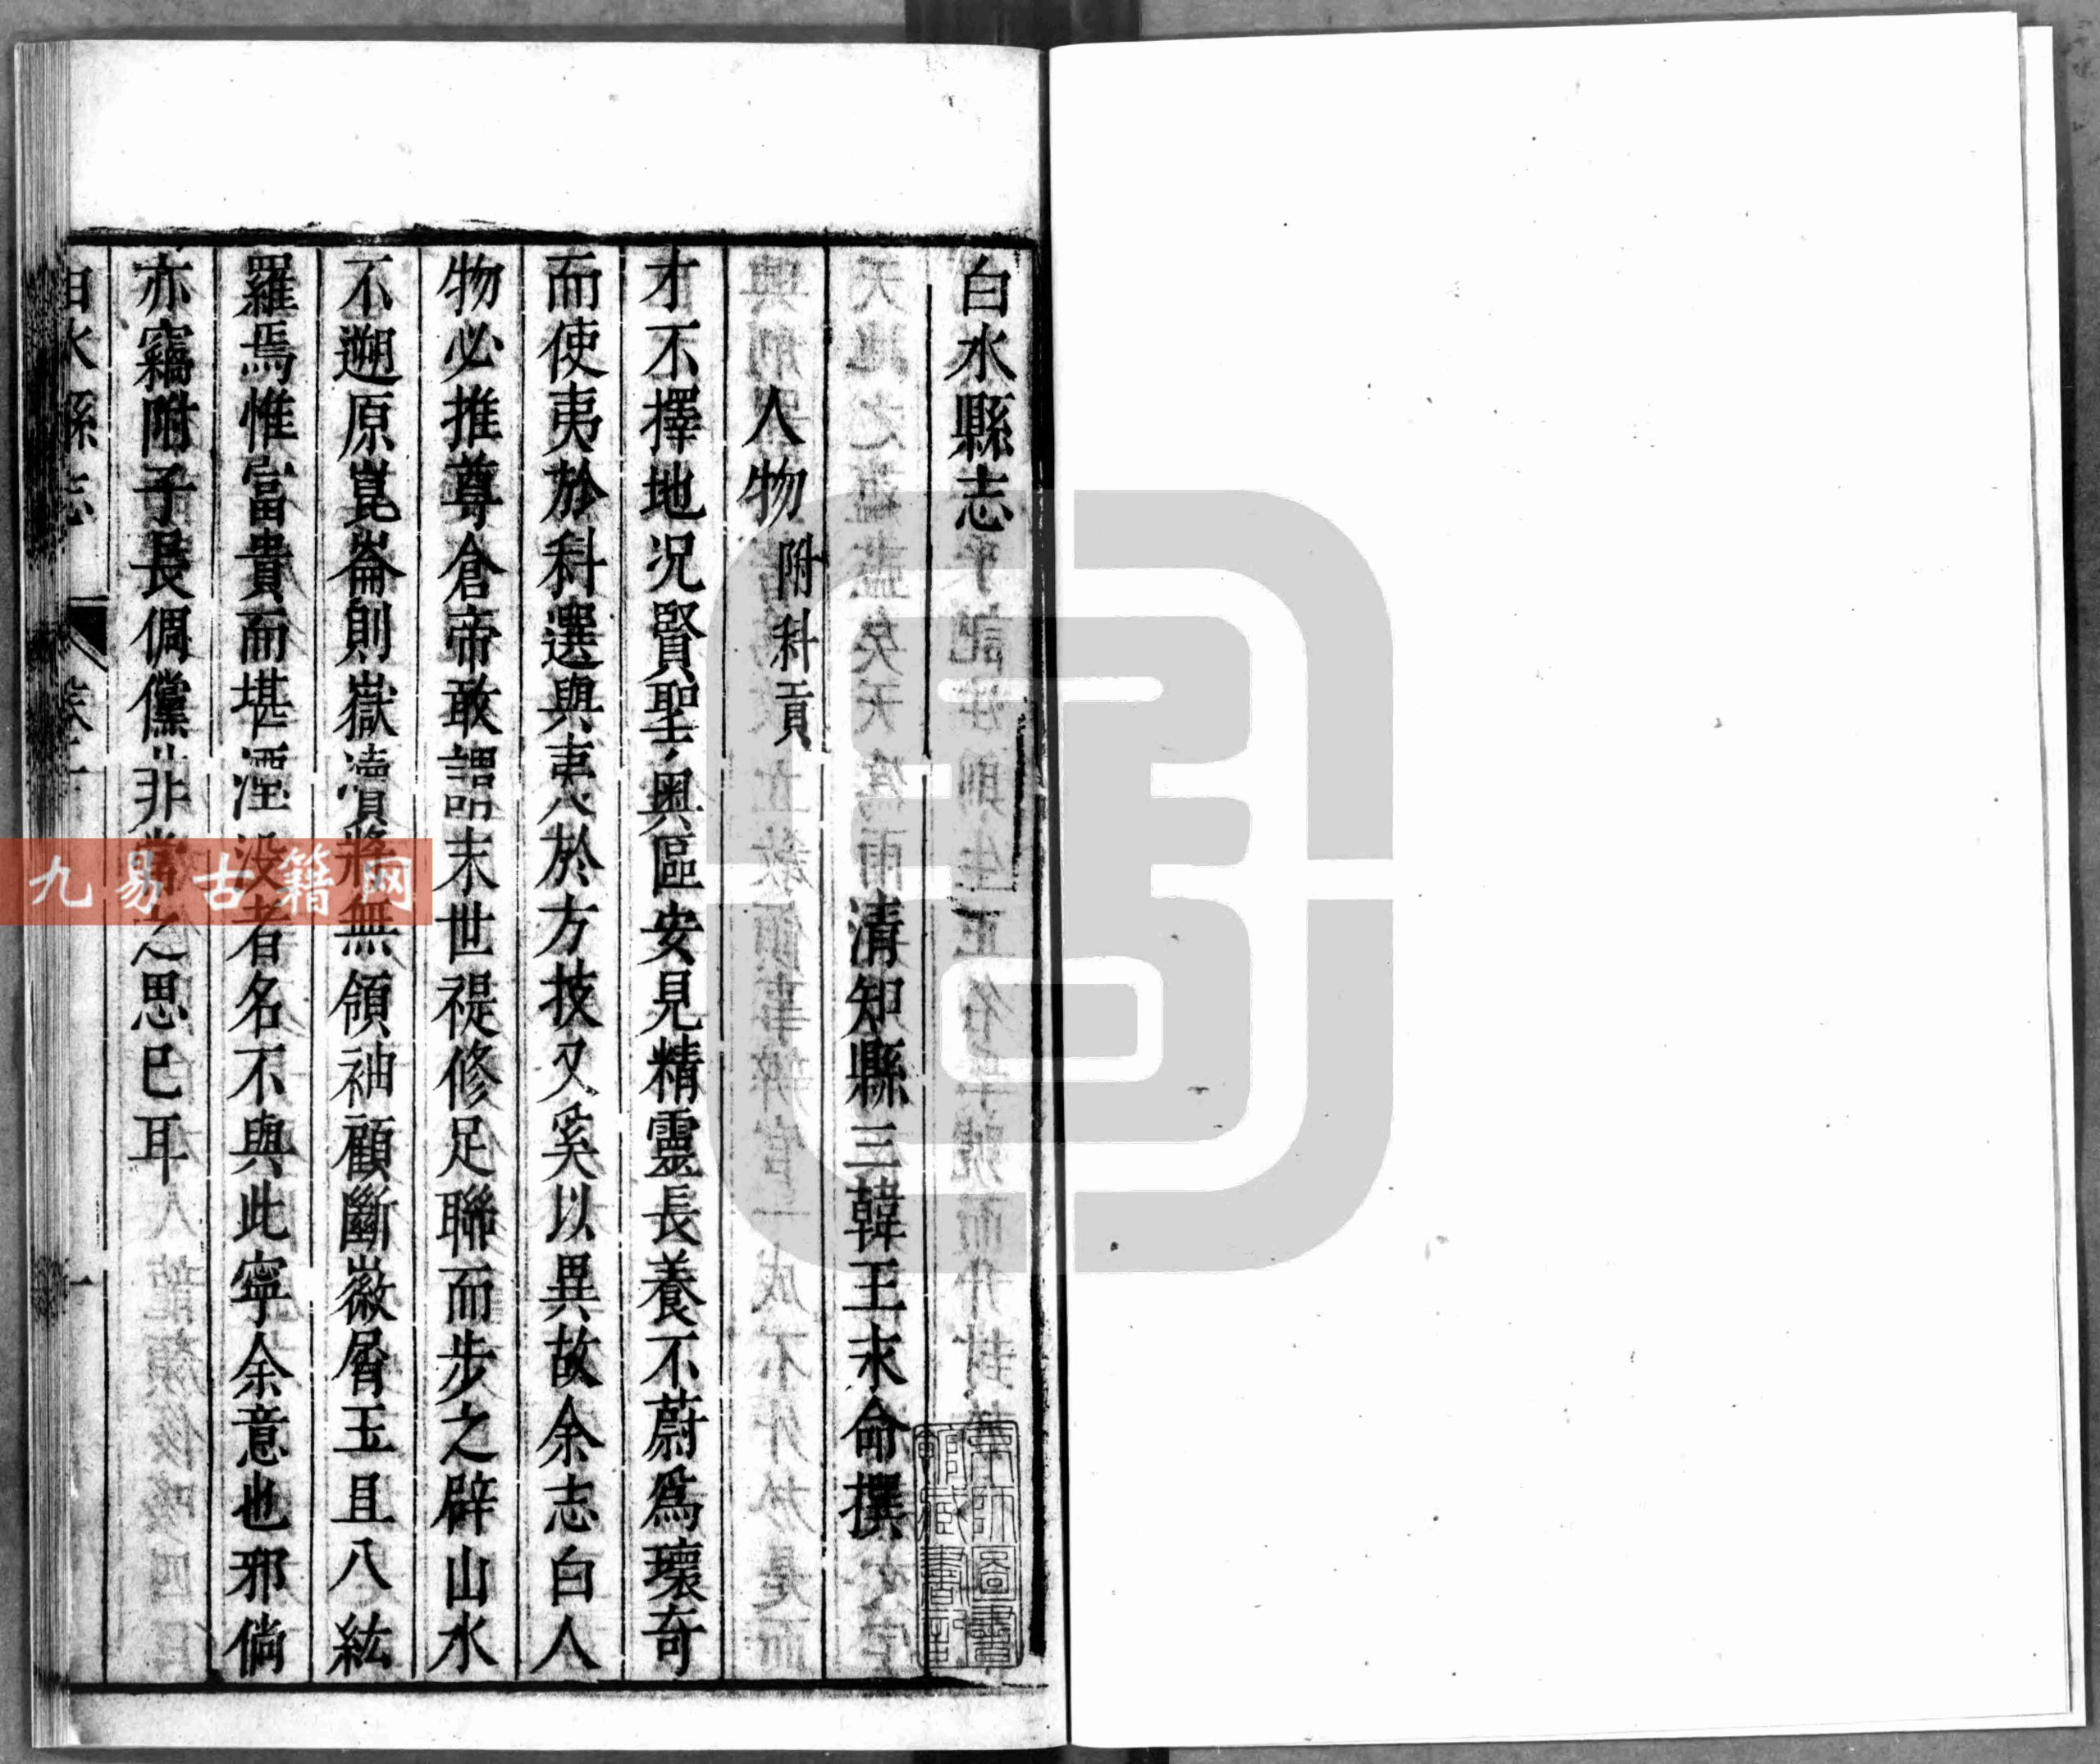 白水縣志
清知縣三韓王永命撰
人物 附科貢
才不擇地况賢聖奥區安見精靈長養不蔚爲瓌奇
而使夷於科選與夷於方技又奚以異故余志白人
物必推尊倉帝敢謂末世禔修足聯而步之辟山水
不遡原崑崙則嶽瀆將無領袖顧斷薇屑玉且八紘
羅焉惟富貴而堪湮没者名不與此寧余意也邪倘
亦竊附子長倜儻非常之思已耳
白水縣志
一
京師圖書
館藏書記
九易古籍网